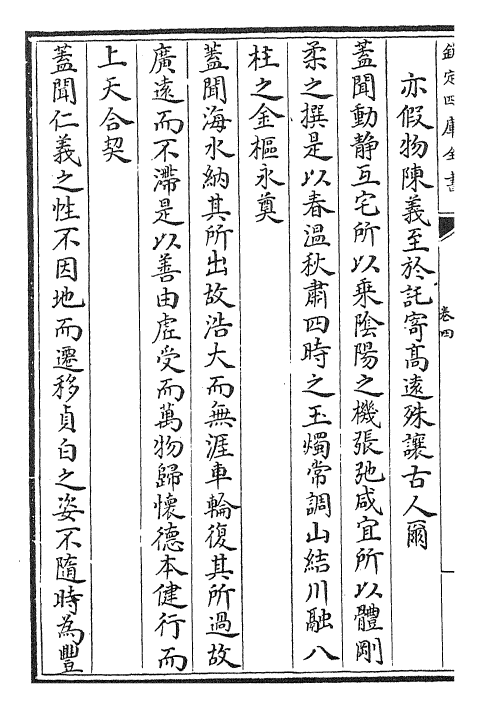 欽定四庫全書
卷四
亦假物陳義至於託寄高遠殊讓古人爾
蓋聞動靜互宅所以乘陰陽之機張弛咸宜所以體剛
柔之撰是以春溫秋肅四時之玉燭常調山結川融八
柱之金樞永奠
蓋聞海水納其所出故浩大而無涯車輪復其所過故
廣遠而不滯是以善由虛受而萬物歸懷德本健行而
上天合契
蓋聞仁義之性不因地而遷移貞白之姿不隨時為豐